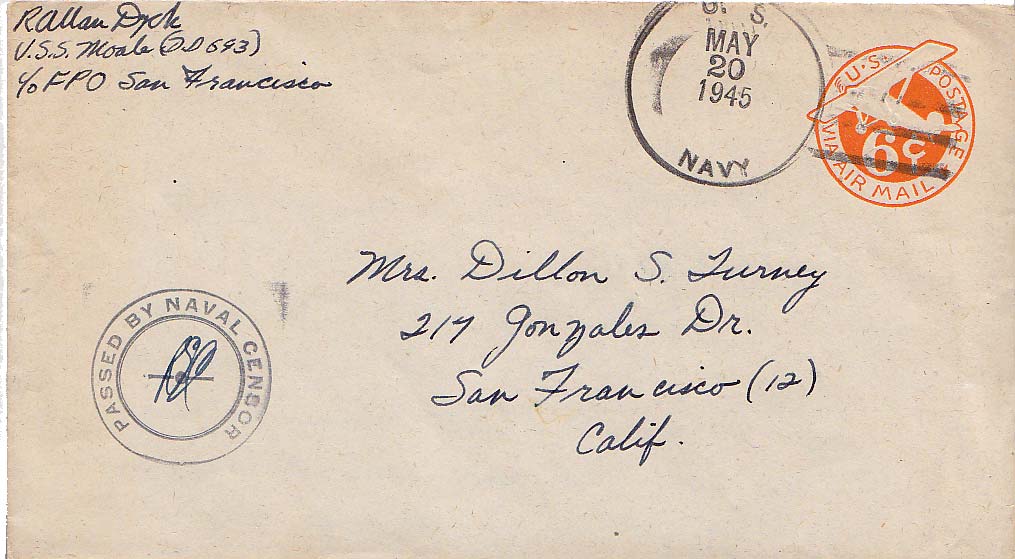 R Allan Dyck
U.S.S. Moale (DD 693)
c/o FPO San Francisco
U. S.
MAY
20
1945
NAVY
U.S. POSTAGE
6¢
VIA AIR MAIL
Mrs. Dillon S. Turney
217 Gonzales Dr.
San Francisco (12)
Calif.
PASSED BY NAVAL CENSOR